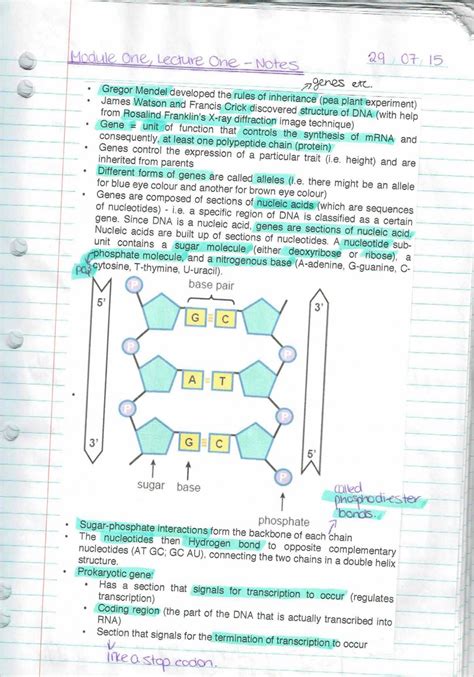 Module One, Lecture One - Notes
29.07.15
genes etc.
• Gregor Mendel developed the rules of inheritance (pea plant experiment)
• James Watson and Francis Crick discovered structure of DNA (with help
from Rosalind Franklin's X-ray diffraction image technique)
• Gene = unit of function that controls the synthesis of mRNA and
consequently, at least one polypeptide chain (protein)
• Genes control the expression of a particular trait (i.e. height) and are
inherited from parents
• Different forms of genes are called alleles (i.e. there might be an allele
for blue eye colour and another for brown eye colour)
• Genes are composed of sections of nucleic acids (which are sequences
of nucleotides) - i.e. a specific region of DNA is classified as a certain
gene. Since DNA is a nucleic acid, genes are sections of nucleic acid.
Nucleic acids are built up of sections of nucleotides. A nucleotide sub-
unit contains a sugar molecule (either deoxyribose or ribose), a
phosphate molecule, and a nitrogenous base (A-adenine, G-guanine, C-
cytosine, T-thymine, U-uracil).
base pair
P
5'
3'
G C
P
P
A T
P
P
G C
3'
5'
P
sugar
base
phosphate
called
phosphodiester
bonds.
• Sugar-phosphate interactions form the backbone of each chain
• The nucleotides then Hydrogen bond to opposite complementary
nucleotides (AT GC; GC AU), connecting the two chains in a double helix
structure.
• Prokaryotic gene:
• Has a section that signals for transcription to occur (regulates
transcription)
• Coding region (the part of the DNA that is actually transcribed into
RNA)
• Section that signals for the termination of transcription to occur
like a stop codon.